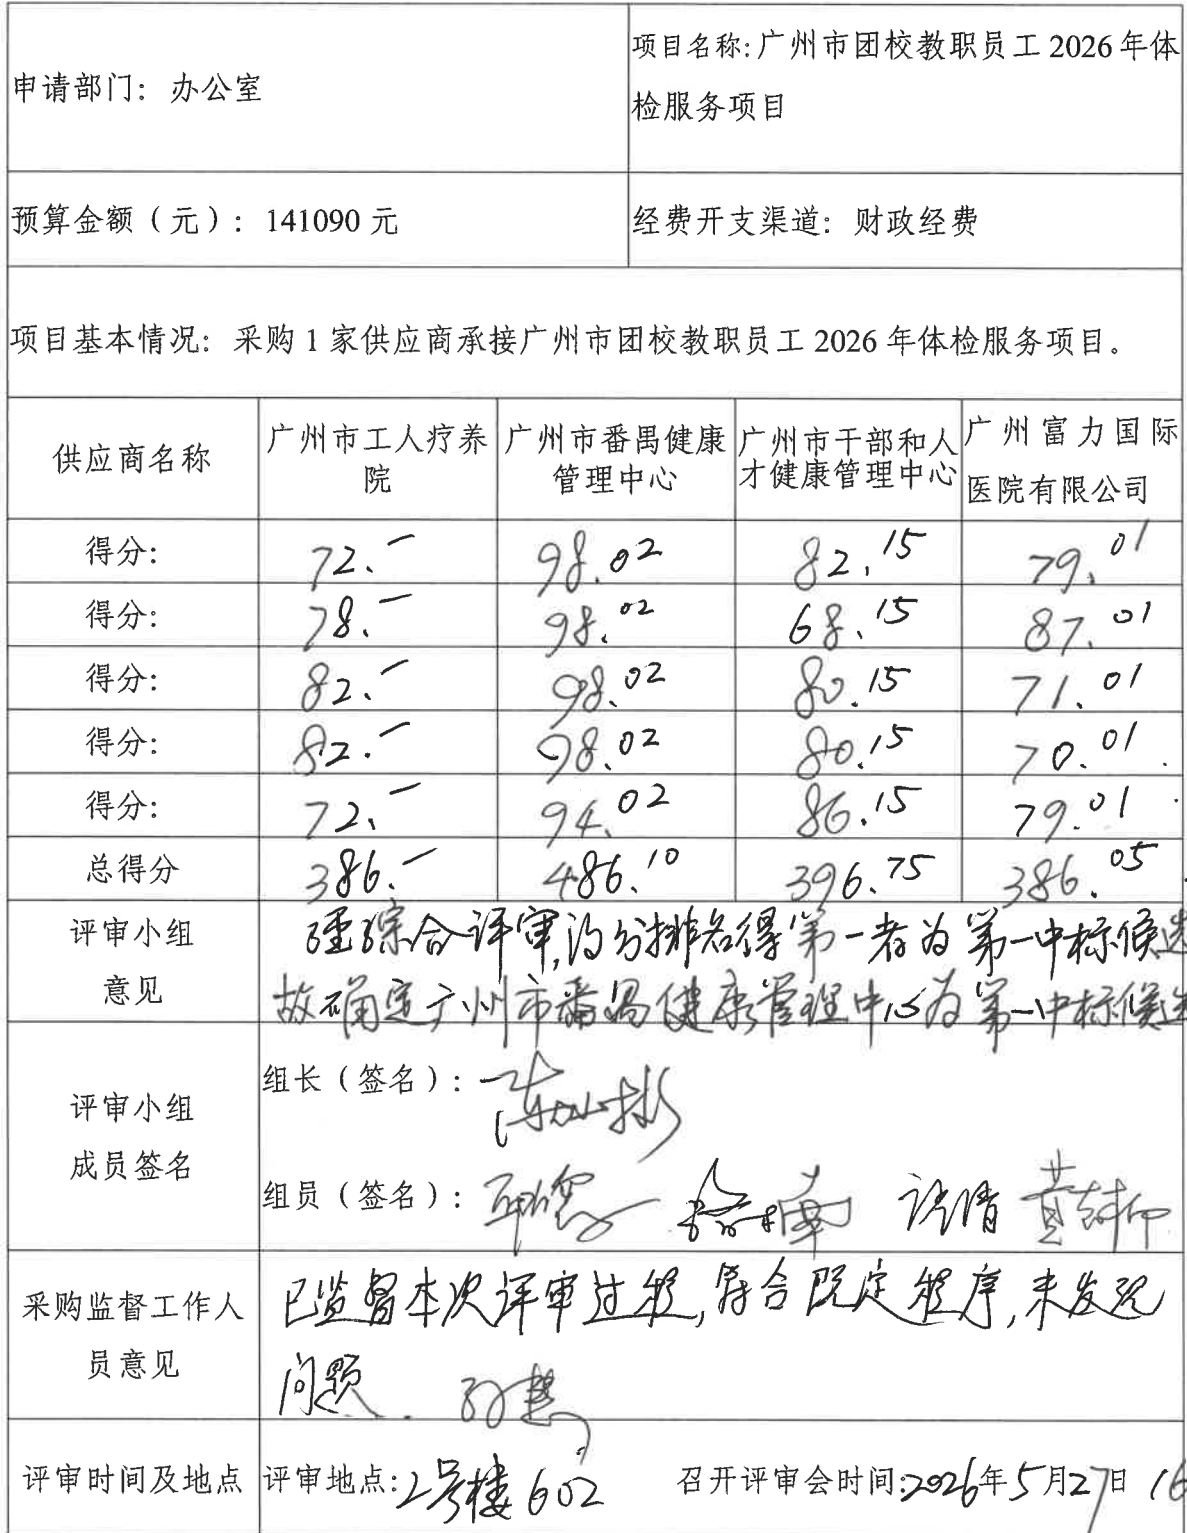 申请部门：办公室
项目名称:广州市团校教职员工 2026 年体
检服务项目
预算金额（元）：141090 元
经费开支渠道：财政经费
项目基本情况：采购 1 家供应商承接广州市团校教职员工 2026 年体检服务项目。
供应商名称
广州市工人疗养
院
广州市番禺健康
管理中心
广州市干部和人
才健康管理中心
广州富力国际
医院有限公司
得分： 72.— 98.02 82.15 79.01
得分： 78.— 98.02 68.15 87.01
得分： 82.— 98.02 80.15 71.01
得分： 82.— 98.02 80.15 70.01
得分： 72.— 94.02 86.15 79.01
总得分 386.— 486.10 396.75 386.05
评审小组
意见
经综合评审,得分排名得第一者为第一中标候选
故确定广州市番禺健康管理中心为第一中标候选
评审小组
成员签名
组长（签名）：
组员（签名）：
采购监督工作人
员意见
已监督本次评审过程,符合既定程序,未发现
问题.
评审时间及地点
评审地点:2号楼602
召开评审会时间:2026年5月27日 16